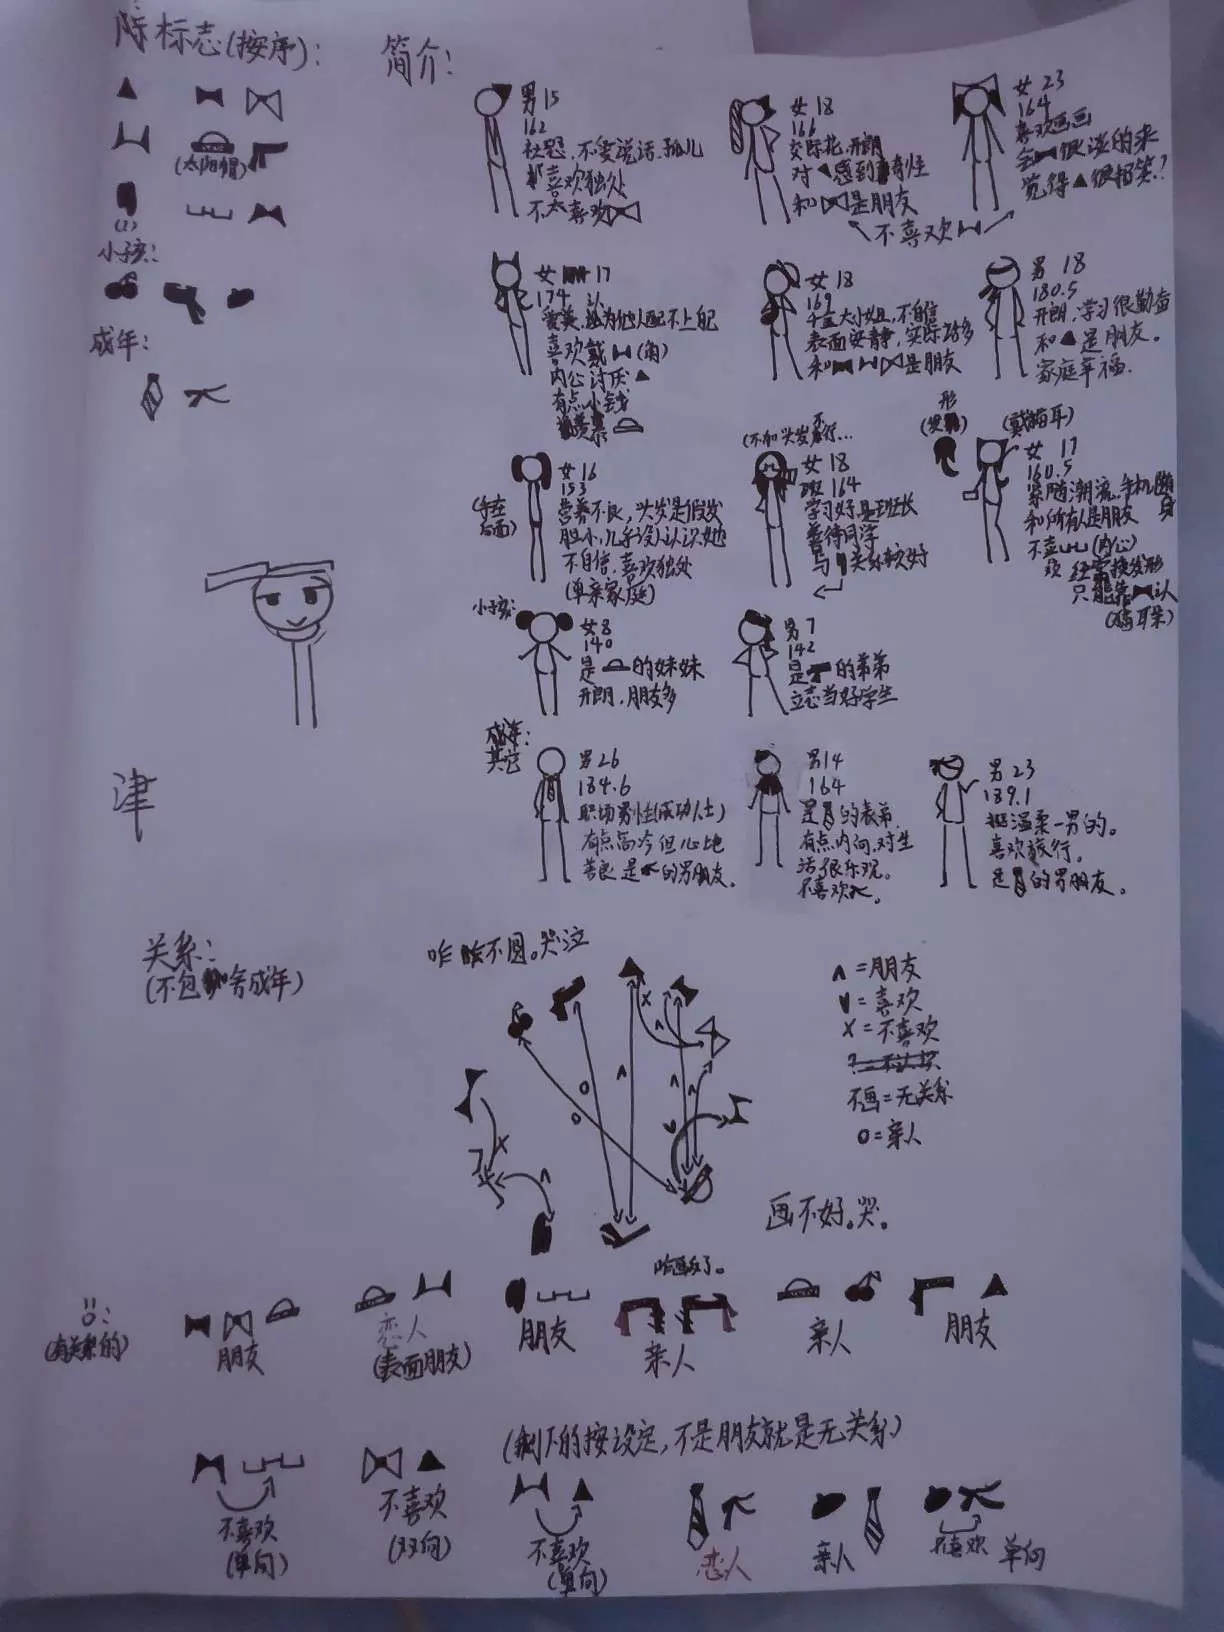 标志(按序):
(太阳帽)
小孩:
成年:
津
简介:
男 15
162
社恐，不爱说话，孤儿
喜欢独处
不太喜欢
女 18
166
交际花，开朗
对 感到奇怪
和 是朋友
不喜欢
女 23
164
喜欢画画
很谈的来
觉得 很搞笑?
女 17
174
爱美，认为他人配不上自己
喜欢戴 (角)
内心讨厌
有点小钱
羡慕
女 18
169
千金大小姐，不自信
表面安静，实际话多
和 是朋友
男 18
180.5
开朗，学习很勤奋
和 是朋友。
家庭幸福.
(手在后面)
女 16
153
营养不良，头发是假发
胆小，几乎没人认识她
不自信，喜欢独处
(单亲家庭)
女 18
164
学习好，是班长
善待同学
与 关系较好
(戴猫耳)
女 17
160.5
紧随潮流，手机随身
和所有人是朋友
不喜欢 (内心)
经常换发形
只能靠 认
(猫耳朵)
小孩:
女 8
140
是 的妹妹
开朗，朋友多
男 7
142
是 的弟弟
立志当好学生
成年:
其它
男 26
184.6
职场男性(成功人士)
有点高冷但心地
善良 是 的男朋友。
男 14
164
是 的表弟
有点内向，对生
活很乐观。
不喜欢 。
男 23
189.1
挺温柔一男的。
喜欢旅行。
是 的男朋友。
关系:
(不包 含成年)
咋 不圆。哭泣
∧ = 朋友
∨ = 喜欢
X = 不喜欢
不画 = 无关系
O = 亲人
画不好。哭。
(有关系的)
朋友
恋人
(表面朋友)
朋友
亲人
亲人
朋友
(剩下的按设定，不是朋友就是无关系)
不喜欢
(单向)
不喜欢
(双向)
不喜欢
(单向)
恋人
亲人
不喜欢 单向